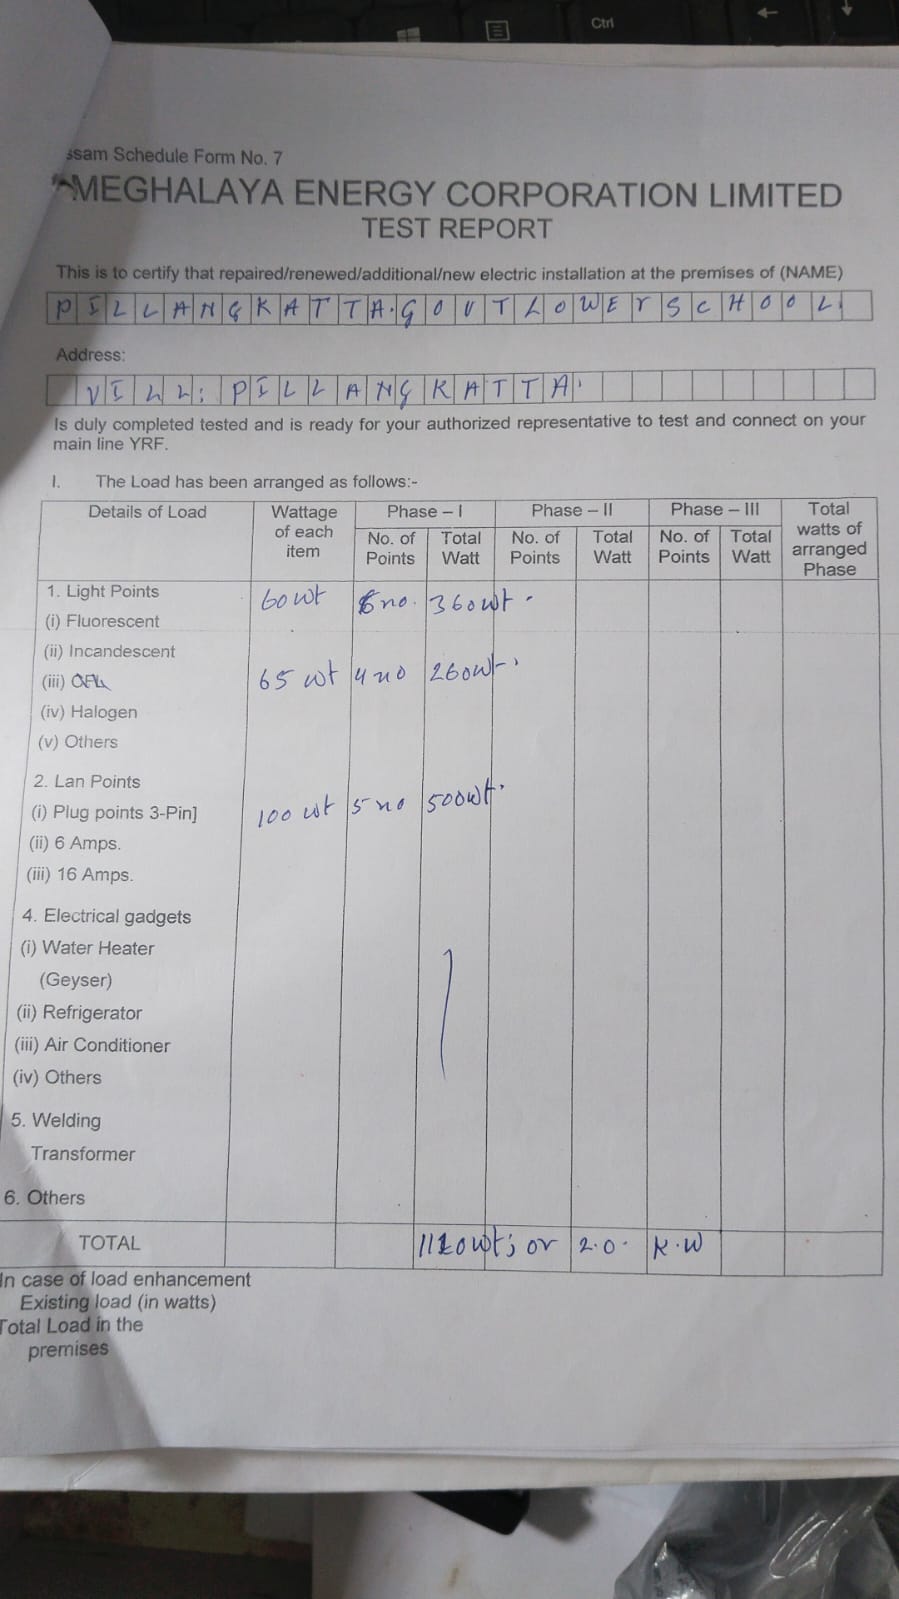 Ctrl
ssam Schedule Form No. 7
MEGHALAYA ENERGY CORPORATION LIMITED
TEST REPORT
This is to certify that repaired/renewed/additional/new electric installation at the premises of (NAME)
PILLANGKATTA. GOVT LOWEr SCHOOL.
Address:
VILL: PILLANGKATTA.
Is duly completed tested and is ready for your authorized representative to test and connect on your
main line YRF.
I. The Load has been arranged as follows:-
Details of Load Wattage of each item Phase – I Phase – II Phase – III Total watts of arranged Phase
No. of Points Total Watt No. of Points Total Watt No. of Points Total Watt
1. Light Points 60 wt 6 no. 360 wt.
(i) Fluorescent
(ii) Incandescent
(iii) 65 wt 4 no 260 wt.
(iv) Halogen
(v) Others
2. Lan Points
(i) Plug points 3-Pin] 100 wt 5 no 500 wt.
(ii) 6 Amps.
(iii) 16 Amps.
4. Electrical gadgets
(i) Water Heater
(Geyser)
(ii) Refrigerator
(iii) Air Conditioner
(iv) Others
5. Welding
Transformer
6. Others
TOTAL 1120 wt; or 2.0. K.W
In case of load enhancement
Existing load (in watts)
Total Load in the
premises